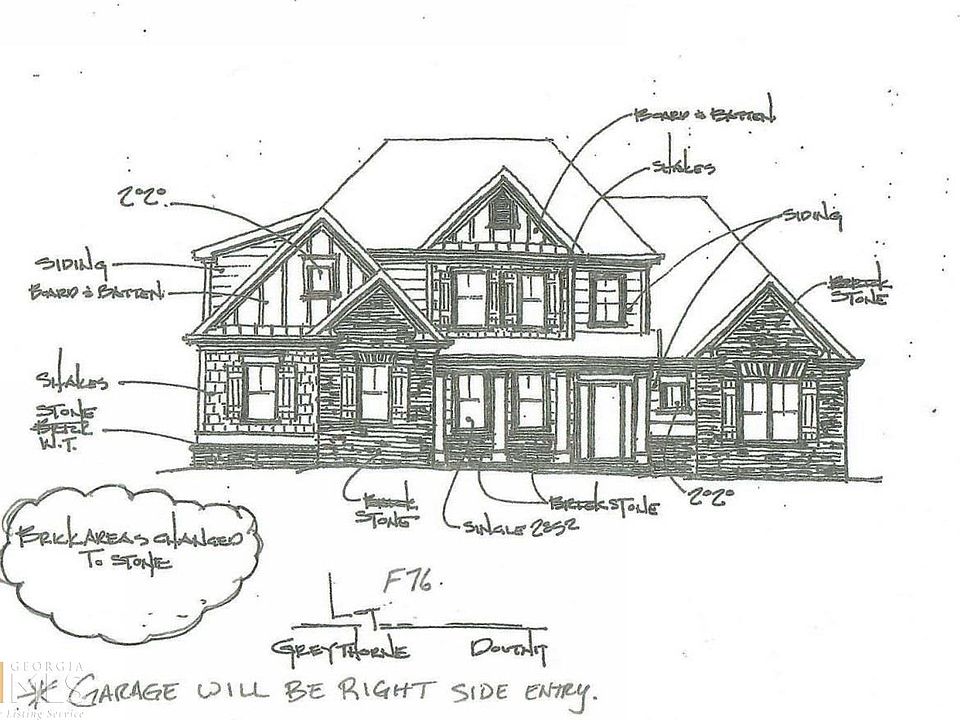 BOARD & BATTEN
SHAKES
2°2°.
SIDING
SIDING
BOARD & BATTEN
BRICK
STONE
SHAKES
STONE
BRICK
W.T.
BRICK
STONE
SINGLE 2852
BRICK STONE
2°2°
BRICK AREAS CHANGED
TO STONE
F76.
LOT
GREYTHORNE
GEORGIA
MLS
Listing Service
* GARAGE WILL BE RIGHT SIDE ENTRY.